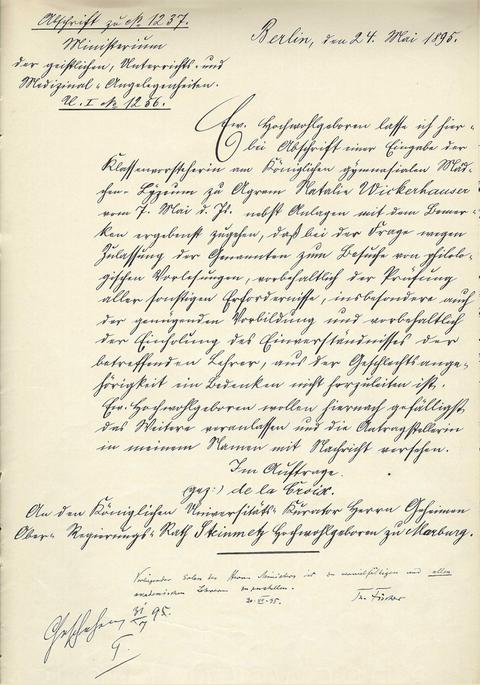 Abschrift zu № 1237.
Berlin, den 24. Mai 1895.
Ministerium
der geistlichen, Unterrichts- und
Medizinal-Angelegenheiten.
U. I № 1256.
Ew. Hochwohlgeboren lasse ich hier-
bei Abschrift einer Eingabe der
Klassenvorsteherin am Königlichen gymnasialen Mäd-
chen-Lyzeum zu Agram Natalie Wickerhauser
vom 7. Mai d. Js. nebst Anlagen mit dem Bemer-
ken ergebenst zugehen, daß bei der Frage wegen
Zulassung der Genannten zum Besuche von philolo-
gischen Vorlesungen, vorbehaltlich der Prüfung
aller sonstigen Erfordernisse, insbesondere auch
der genügenden Vorbildung und vorbehaltlich
der Einholung des Einverständnisses der
betreffenden Lehrer, aus der Geschlechtsange-
hörigkeit ein Bedenken nicht herzuleiten ist.
Ew. Hochwohlgeboren wollen hiernach gefälligst
das Weitere veranlassen und die Antragstellerin
in meinem Namen mit Nachricht versehen.
Im Auftrage.
(gez:) de la Croix.
An den Königlichen Universitäts-Kurator Herrn Geheimen
Ober-Regierungs-Rath Steinmetz Hochwohlgeboren zu Marburg.
des Herrn Ministers ist zu vervielfältigen und allen
akademischen Lehrern
95.
Geschehen 95.